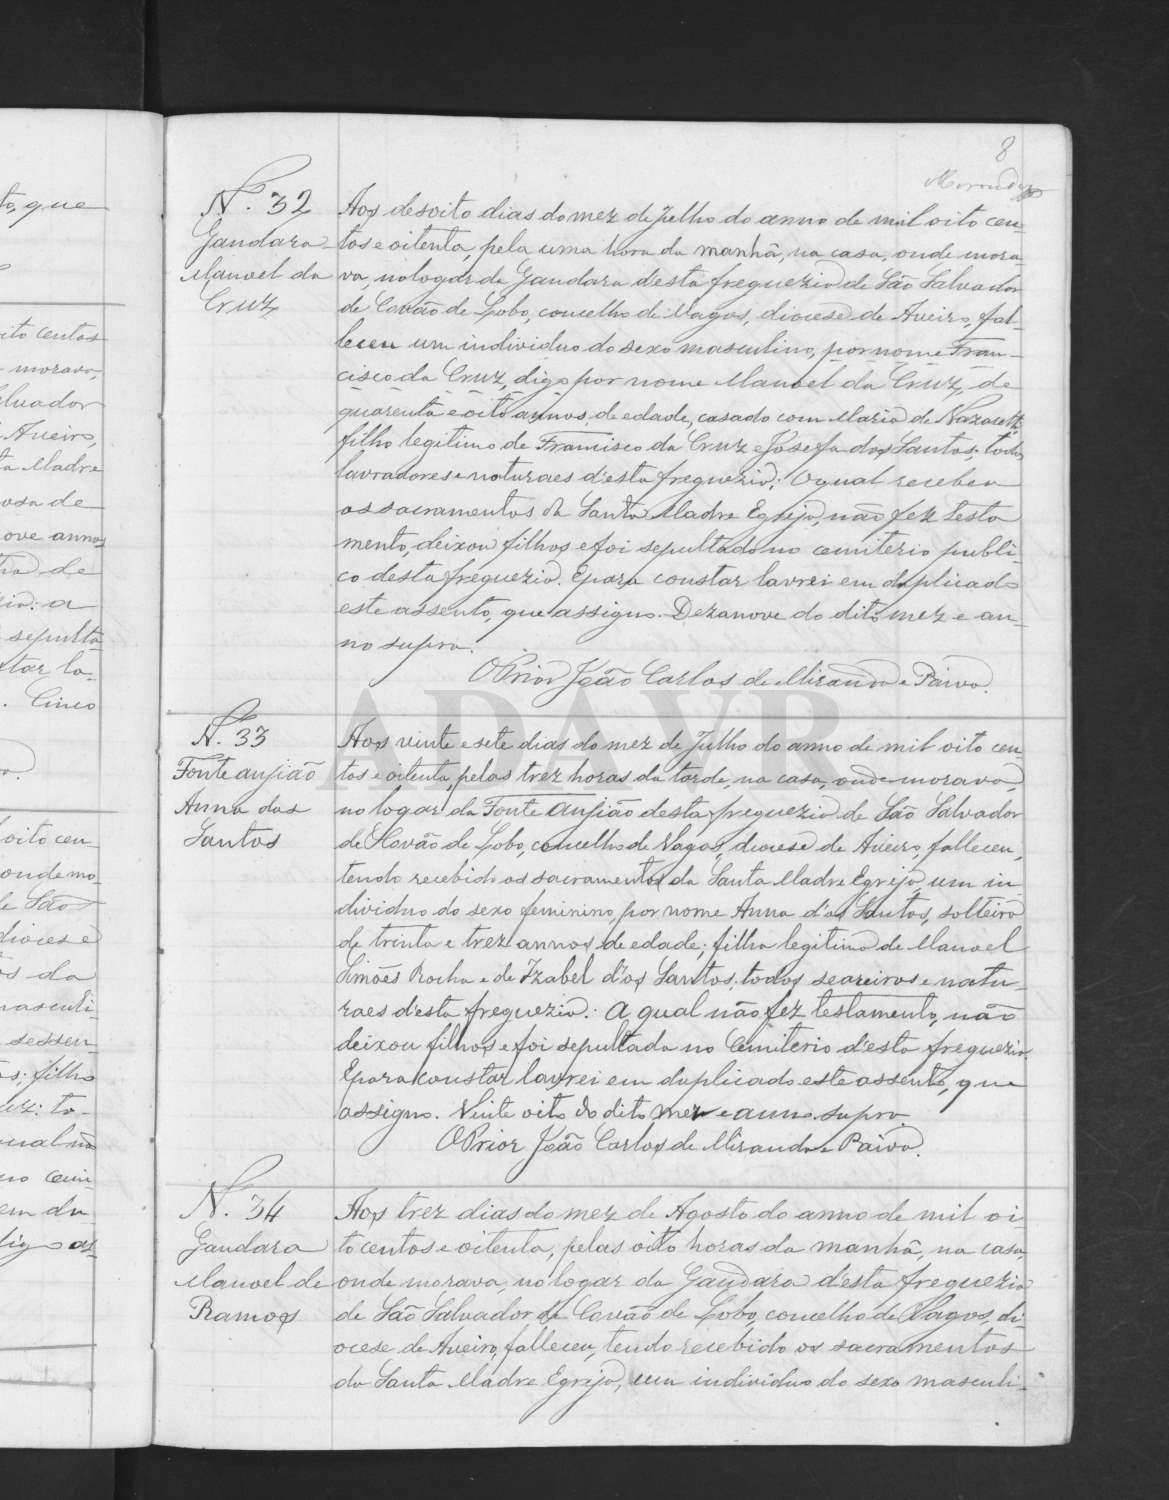 8
to, que
ito centos
morava,
lvador
Aveiro,
ta Madre
osa de
ove annos
de
a
sepulta-
tar la-
Cinco
oito cen-
onde mo-
de São
diocese
os da
masculi-
sessen-
os; filho
uz: to-
qual não
no cemi-
em du-
N.º 32
Gandara
Manoel da
Cruz
Aos desoito dias do mez de Julho do anno de mil oito cen-
tos e oitenta, pela uma hora da manhã, na casa, onde mora-
va, no logar da Gandara d'esta freguezia de São Salvador
de Covão de Lobo, concelho de Vagos, diocese de Aveiro, fal-
leceu um individuo do sexo masculino, por nome Fran-
cisco da Cruz, digo por nome Manoel da Cruz, de
quarenta e oito annos de edade, casado com Maria de Nazareth,
filho legitimo de Francisco da Cruz e Josefa dos Santos; todos
lavradores e naturaes d'esta freguezia; O qual recebeu
os sacramentos da Santa Madre Egreja, não fez testa
mento, deixou filhos e foi sepultado no cemiterio publi-
co desta freguezia. E para constar lavrei em duplicado
este assento, que assigno. Dezanove do dito mez e an-
no supra.
O Prior João Carlos de Miranda e Paiva.
N.º 33
Fonte anjião
Anna dos
Santos
Aos vinte e sete dias do mez de Julho do anno de mil oito cen
tos e oitenta, pelas trez horas da tarde, na casa, onde morava,
no logar da Fonte anjião desta freguezia de São Salvador
de Covão de Lobo, concelho de Vagos, diocese de Aveiro, falleceu,
tendo recebido os sacramentos da Santa Madre Egreja, um in-
dividuo do sexo feminino, por nome Anna d'os Santos, solteira
de trinta e trez annos de edade; filha legitima de Manoel
Simões Rocha e de Izabel d'os Santos, todos seareiros e natu-
raes d'esta freguezia: A qual não fez testamento, não
deixou filhos e foi sepultada no Cemiterio d'esta freguezia.
E para constar lavrei em duplicado este assento, que
assigno. Vinte oito do dito mez e anno supra.
O Prior João Carlos de Miranda e Paiva.
N.º 34
Gandara
Manoel de
Ramos
Aos trez dias do mez de Agosto do anno de mil oi-
to centos e oitenta, pelas oito horas da manhã, na casa,
onde morava, no logar da Gandara d'esta freguezia
de São Salvador de Covão de Lobo, concelho de Vagos, di-
ocese de Aveiro, falleceu, tendo recebido os sacramentos
da Santa Madre Egreja, um individuo do sexo masculi-
ADAVR